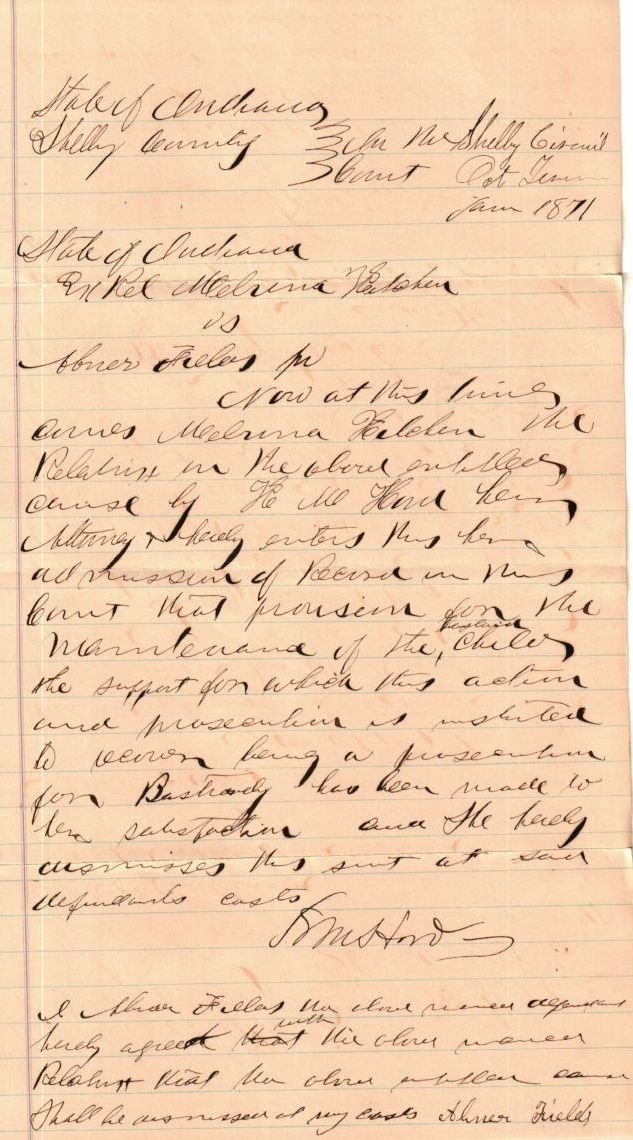 State of Indiana
Shelby County } In the Shelby Circuit
Court Oct Term
1871
State of Indiana
Ex Rel Melvina
vs
Abner Fields
Now at this time
comes Melvina the
Relatrix in the above entitled
cause by Hord her
Attorney & hereby enters this her
admission of Record in this
Court that provision for the
Maintenance of the bastard child
the support for which this action
and prosecution is instituted
to recover being a prosecution
for Bastardy has been made to
her satisfaction and She hereby
dismisses this suit at said
defendants costs
Hord
I Abner Fields the above named defendant
hereby agree with the above named
Relatrix that the above entitled cause
Shall be dismissed at my costs Abner Fields